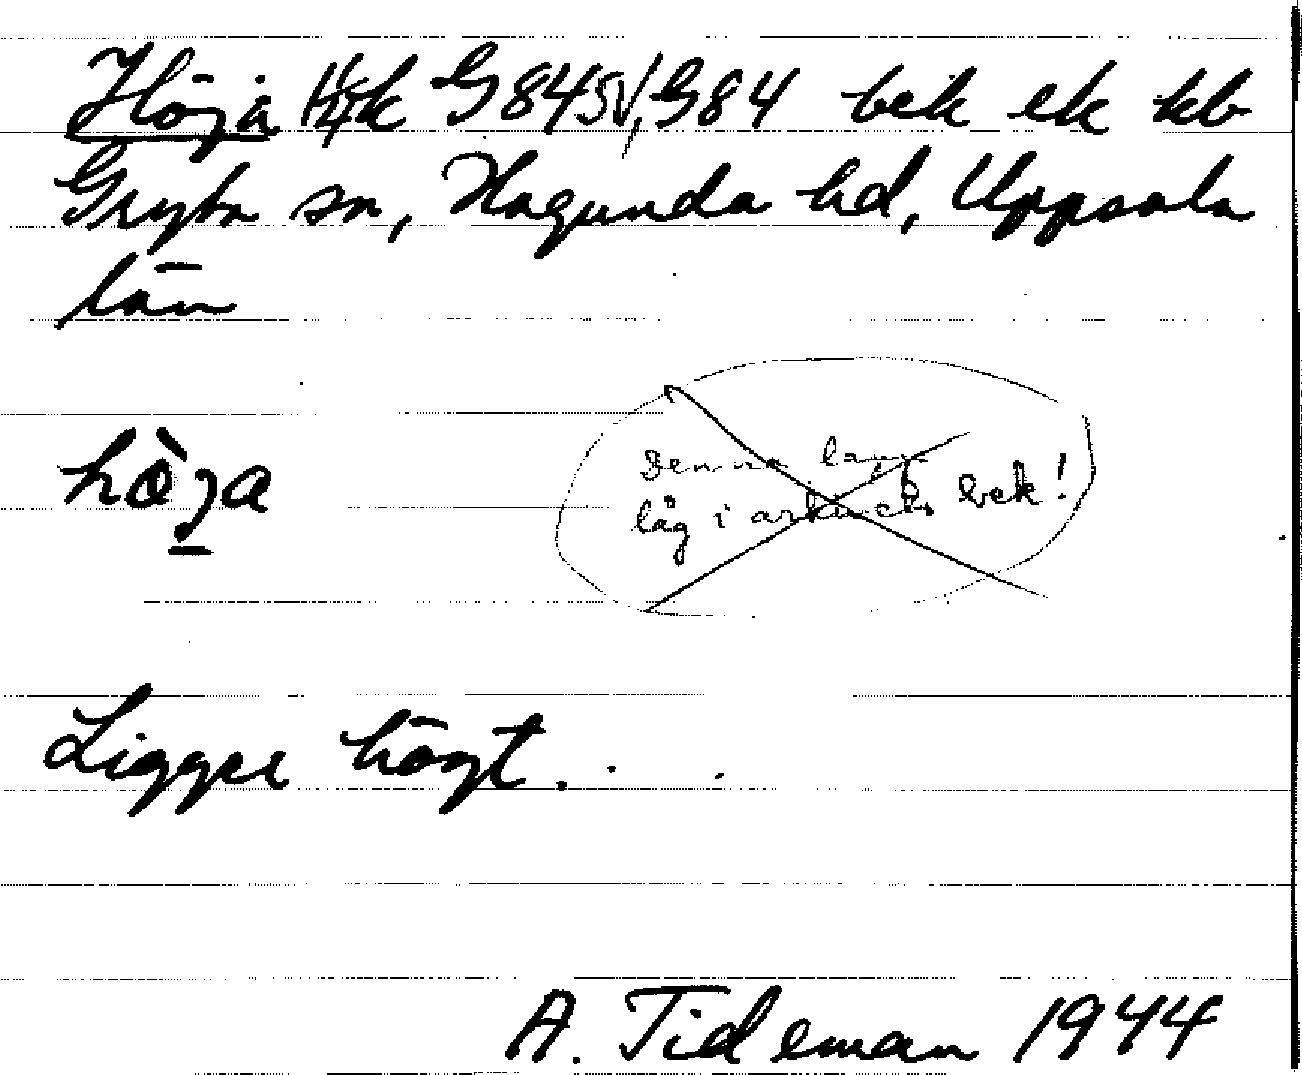 Höja hfk G84SV, G84 bek ek kb
Gryta sn, Hagunda hd, Uppsala
län
hòja
Denna lapp
låg i arkivets bek!
Ligger högt.
A. Tideman 1944